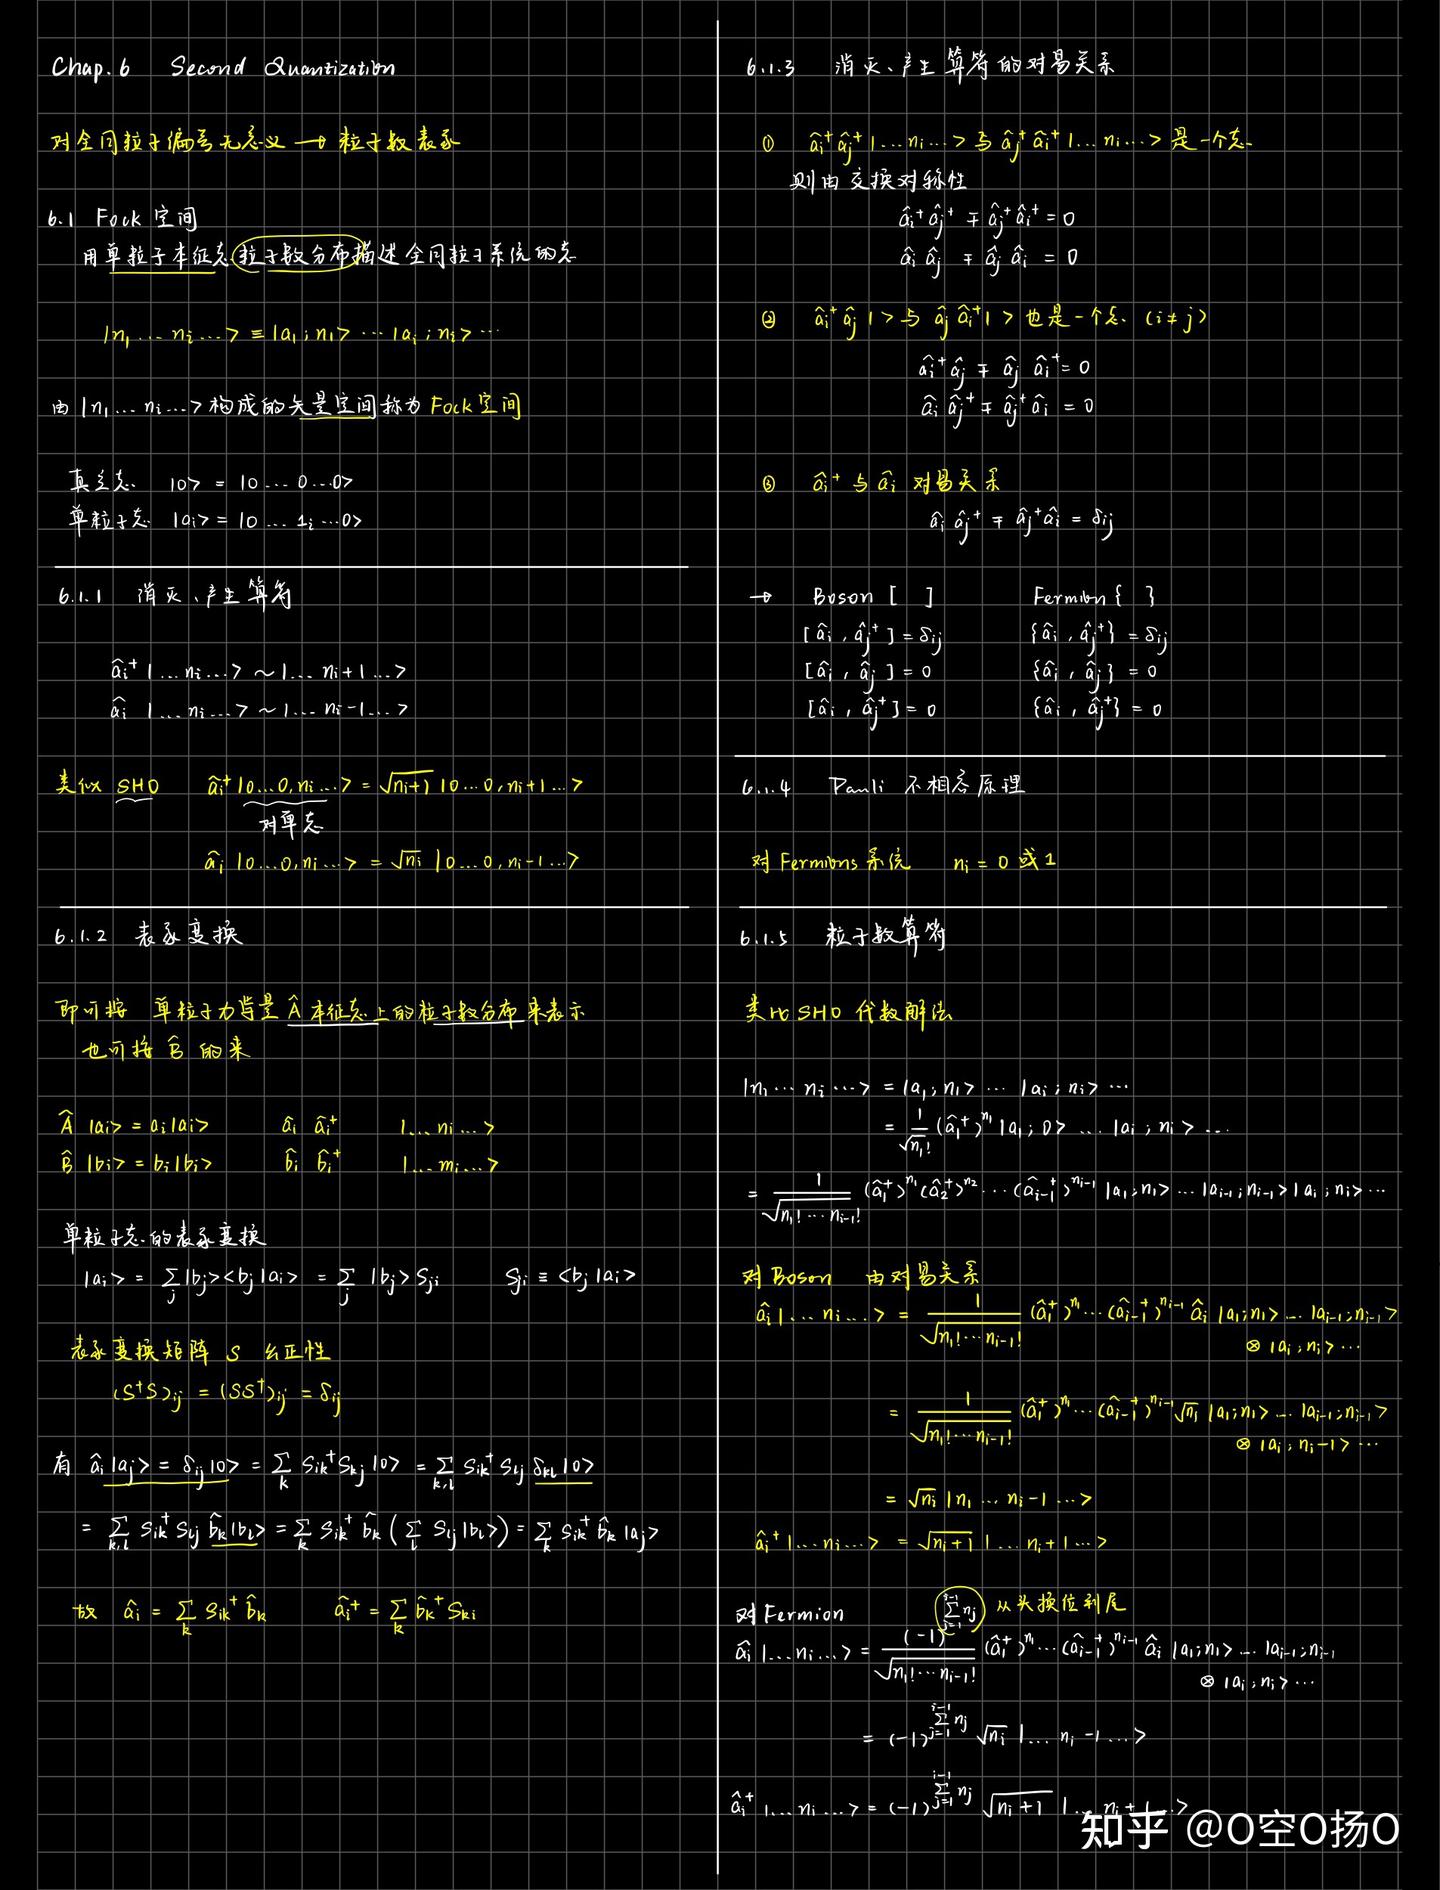 Chap.6 Second Quantization
对全同粒子编号无意义 → 粒子数表象
6.1 Fock 空间
用单粒子本征态粒子数分布描述全同粒子系统的态
|n₁ ... nᵢ ...> ≡ |a₁; n₁> ... |aᵢ; nᵢ> ...
由 |n₁ ... nᵢ ...> 构成的矢量空间称为 Fock 空间
真空态 |0> = |0 ... 0 ... 0>
单粒子态 |aᵢ> = |0 ... 1ᵢ ... 0>
6.1.1 消灭、产生算符
âᵢ⁺ |... nᵢ ...> ~ |... nᵢ+1 ...>
âᵢ |... nᵢ ...> ~ |... nᵢ-1 ...>
类似 SHO âᵢ⁺ |0...0, nᵢ ...> = √(nᵢ+1) |0...0, nᵢ+1 ...>
对单态
âᵢ |0...0, nᵢ ...> = √nᵢ |0...0, nᵢ-1 ...>
6.1.2 表象变换
即可按 单粒子力学量 Â 本征态上的粒子数分布来表示
也可按 B̂ 的来
Â |aᵢ> = aᵢ|aᵢ> âᵢ âᵢ⁺ |... nᵢ ...>
B̂ |bᵢ> = bᵢ|bᵢ> b̂ᵢ b̂ᵢ⁺ |... mᵢ ...>
单粒子态的表象变换
|aᵢ> = Σⱼ |bⱼ><bⱼ|aᵢ> = Σⱼ |bⱼ> Sⱼᵢ Sⱼᵢ ≡ <bⱼ|aᵢ>
表象变换矩阵 S 幺正性
(S⁺S)ᵢⱼ = (SS⁺)ᵢⱼ = δᵢⱼ
有 âᵢ|aⱼ> = δᵢⱼ|0> = Σₖ Sᵢₖ⁺ Sₖⱼ |0> = Σₖ,ₗ Sᵢₖ⁺ Sₗⱼ δₖₗ |0>
= Σₖ,ₗ Sᵢₖ⁺ Sₗⱼ b̂ₖ|bₗ> = Σₖ Sᵢₖ⁺ b̂ₖ (Σₗ Sₗⱼ|bₗ>) = Σₖ Sᵢₖ⁺ b̂ₖ |aⱼ>
故 âᵢ = Σₖ Sᵢₖ⁺ b̂ₖ âᵢ⁺ = Σₖ b̂ₖ⁺ Sₖᵢ
6.1.3 消灭、产生算符的对易关系
① âᵢ⁺ âⱼ⁺ |... nᵢ ...> 与 âⱼ⁺ âᵢ⁺ |... nᵢ ...> 是一个态
则由交换对称性
âᵢ⁺ âⱼ⁺ ∓ âⱼ⁺ âᵢ⁺ = 0
âᵢ âⱼ ∓ âⱼ âᵢ = 0
② âᵢ⁺ âⱼ |> 与 âⱼ âᵢ⁺ |> 也是一个态 (i≠j)
âᵢ⁺ âⱼ ∓ âⱼ âᵢ⁺ = 0
âᵢ âⱼ⁺ ∓ âⱼ⁺ âᵢ = 0
③ âᵢ⁺ 与 âᵢ 对易关系
âᵢ âⱼ⁺ ∓ âⱼ⁺ âᵢ = δᵢⱼ
→ Boson [ ] Fermion { }
[âᵢ, âⱼ⁺] = δᵢⱼ {âᵢ, âⱼ⁺} = δᵢⱼ
[âᵢ, âⱼ] = 0 {âᵢ, âⱼ} = 0
[âᵢ, âⱼ⁺] = 0 {âᵢ, âⱼ⁺} = 0
6.1.4 Pauli 不相容原理
对 Fermions 系统 nᵢ = 0 或 1
6.1.5 粒子数算符
类比 SHO 代数解法
|n₁ ... nᵢ ...> = |a₁; n₁> ... |aᵢ; nᵢ> ...
= 1/√n₁! (â₁⁺)^n₁ |a₁; 0> ... |aᵢ; nᵢ> ...
= 1/√(n₁! ... nᵢ₋₁!) (â₁⁺)^n₁ (â₂⁺)^n₂ ... (âᵢ₋₁⁺)^nᵢ₋₁ |a₁; n₁> ... |aᵢ₋₁; nᵢ₋₁> |aᵢ; nᵢ> ...
对 Boson 由对易关系
âᵢ|... nᵢ ...> = 1/√(n₁! ... nᵢ₋₁!) (â₁⁺)^n₁ ... (âᵢ₋₁⁺)^nᵢ₋₁ âᵢ |a₁; n₁> ... |aᵢ₋₁; nᵢ₋₁>
⊗ |aᵢ; nᵢ> ...
= 1/√(n₁! ... nᵢ₋₁!) (â₁⁺)^n₁ ... (âᵢ₋₁⁺)^nᵢ₋₁ √nᵢ |a₁; n₁> ... |aᵢ₋₁; nᵢ₋₁>
⊗ |aᵢ; nᵢ-1> ...
= √nᵢ |n₁ ... nᵢ-1 ...>
âᵢ⁺ |... nᵢ ...> = √(nᵢ+1) |... nᵢ+1 ...>
对 Fermion Σⱼ₌₁^(i-1) nⱼ 从头换位到尾
âᵢ |... nᵢ ...> = (-1)/√(n₁! ... nᵢ₋₁!) (â₁⁺)^n₁ ... (âᵢ₋₁⁺)^nᵢ₋₁ âᵢ |a₁; n₁> ... |aᵢ₋₁; nᵢ₋₁
⊗ |aᵢ; nᵢ> ...
= (-1)^(Σⱼ₌₁^(i-1) nⱼ) √nᵢ |... nᵢ-1 ...>
âᵢ⁺ |... nᵢ ...> = (-1)^(Σⱼ₌₁^(i-1) nⱼ) √(nᵢ+1) |... nᵢ+1 ...>
知乎 @O空O扬O